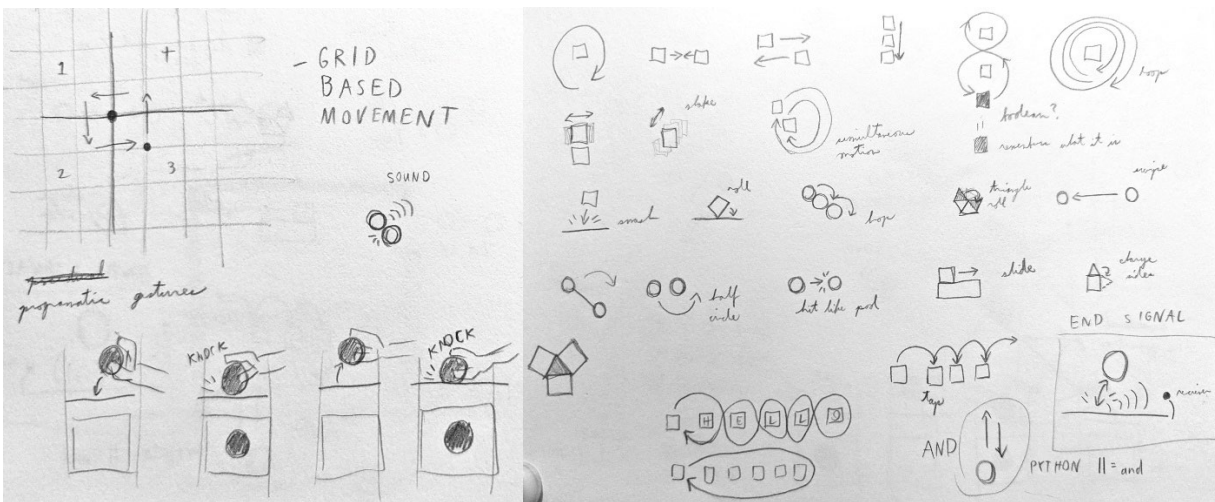 1
+
2
3
- GRID
BASED
MOVEMENT
SOUND
programatic gestures
KNOCK
KNOCK
loop
shake
simultaneous
motion
boolean?
remember what it is
smash
roll
hop
triangle
roll
swipe
half
circle
hit like pool
slide
change
sides
END SIGNAL
receiver
tap
H E L L O
AND
PYTHON || = and